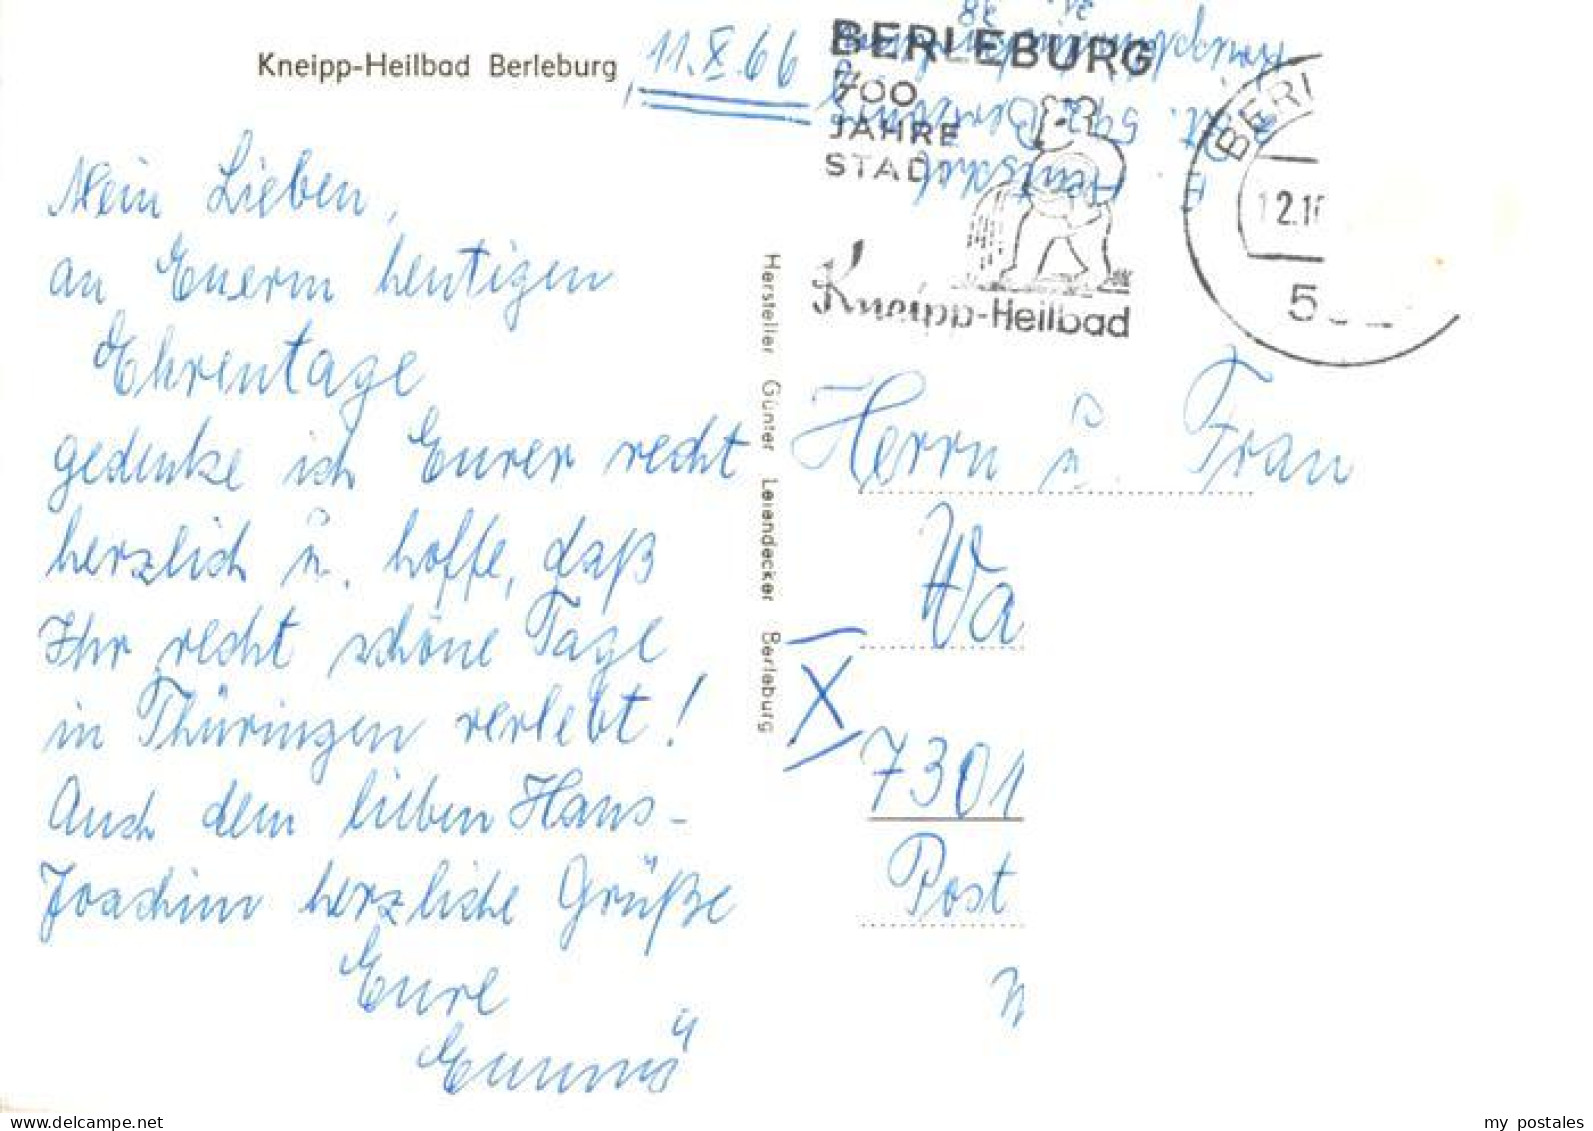 Kneipp-Heilbad Berleburg
11.X.66
Mein Lieben,
an Euerm heutigen
Ehrentage
gedenke ich Eurer recht
herzlich u. hoffe, daß
Ihr recht schöne Tage
in Thüringen verlebt!
Auch dem lieben Hans-
Joachim herzliche Grüße
Eure
Hersteller Günter Leiendecker Berleburg
BERLEBURG
700
JAHRE
STADT
Kneipp-Heilbad
BERL
12.10
5
Herrn u. Frau
Wa
X
7301
Post
my postales